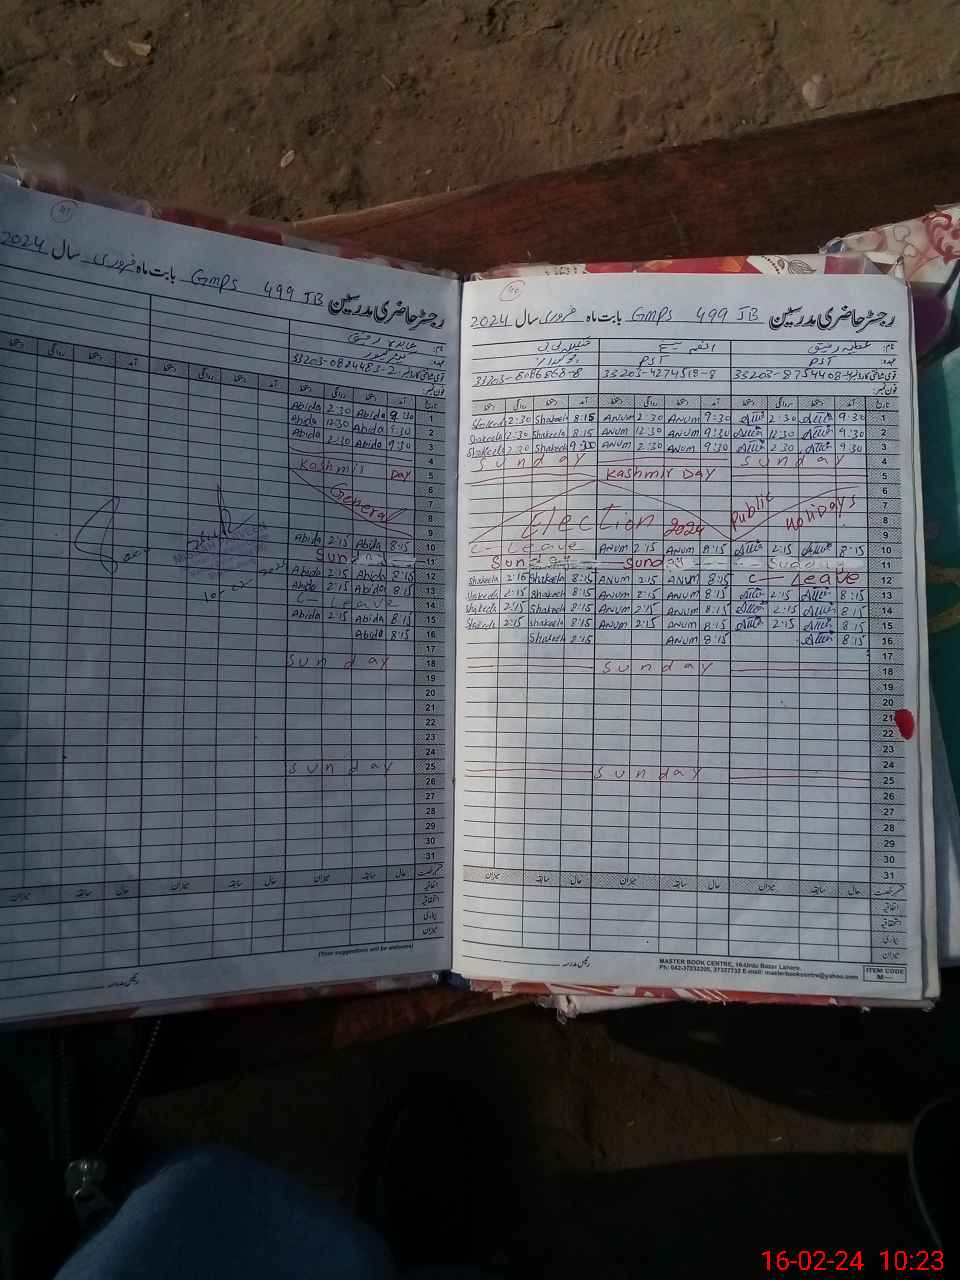 41
رجسٹر حاضری مدرسین GMPS 499 JB بابت ماہ فروری سال 2024
33203-0824483-2
تاریخ
Abida 2:30 Abida 9:30 1
Abida 12:30 Abida 9:30 2
Abida 2:30 Abida 9:30 3
4
Kashmir DAY 5
6
General 7
8
9
Abida 2:15 Abida 8:15 10
Sunday 11
Abida 2:15 Abida 8:15 12
Abida 2:15 Abida 8:15 13
C- Leave 14
Abida 2:15 Abida 8:15 15
Abida 8:15 16
17
Sunday 18
19
20
21
22
23
24
Sunday 25
26
27
28
29
30
31
میزان سابقہ حال میزان سابقہ حال میزان سابقہ حال
اتفاقیہ
استحقاقیہ
بیماری
میزان
(Your suggestions will be welcome)
رئیس مدرسہ
40
رجسٹر حاضری مدرسین GMPS 499 JB بابت ماہ فروری سال 2024
نام:
عہدہ: PST PST
33203-8754408-4 33203-4274518-8 33203-8086868-8
فون نمبر:
تاریخ
Shakeela 2:30 Shakeela 8:15 ANUM 2:30 ANUM 9:30 2:30 9:30 1
Shakeela 12:30 Shakeela 8:15 ANUM 12:30 ANUM 9:30 12:30 9:30 2
Shakeela 2:30 Shakeela ANUM 2:30 ANUM 9:30 2:30 9:30 3
Sunday Sunday 4
Kashmir DAY 5
6
Election 2024 Public Holidays 7
8
9
C- Leave ANUM 2:15 ANUM 8:15 2:15 8:15 10
Sunday Sunday Sunday 11
Shakeela 2:15 Shakeela 8:15 ANUM 2:15 ANUM 8:15 C- Leave 12
Shakeela 2:15 Shakeela 8:15 ANUM 2:15 ANUM 8:15 2:15 8:15 13
Shakeela 2:15 Shakeela 8:15 ANUM 2:15 ANUM 8:15 2:15 8:15 14
Shakeela 2:15 Shakeela 8:15 ANUM 2:15 ANUM 8:15 2:15 8:15 15
Shakeela 8:15 ANUM 8:15 8:15 16
17
Sunday 18
19
20
21
22
23
24
Sunday 25
26
27
28
29
30
31
میزان سابقہ حال میزان سابقہ حال میزان سابقہ حال
اتفاقیہ
استحقاقیہ
بیماری
میزان
MASTER BOOK CENTRE, 16-Urdu Bazar Lahore.
E-mail: masterbookcentre@yahoo.com
ITEM CODE
M—
رئیس مدرسہ
16-02-24 10:23